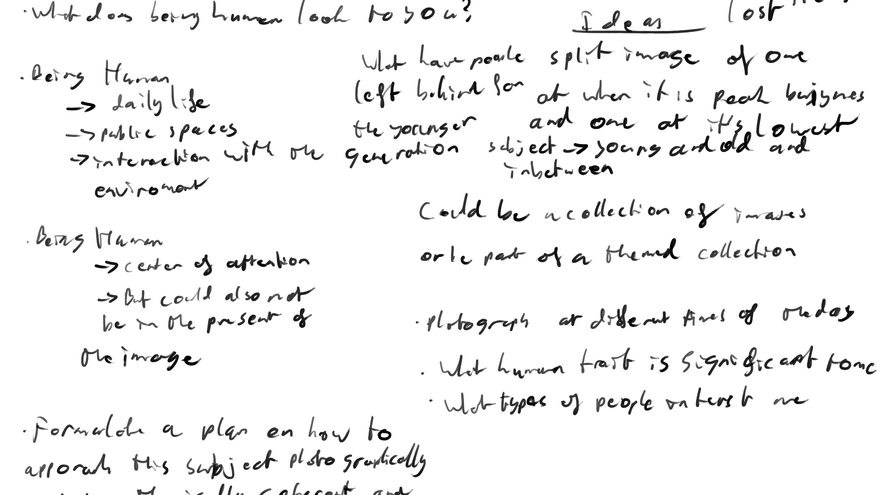 · What does being human look to you?
· Being Human
→ daily life
→ public spaces
→ interaction with the
enviroment
· Being Human
→ center of attention
→ But could also not
be in the present of
the image
· Formulate a plan on how to
approah this subject photographically
coherent and
Ideas
lost
What have people
left behind for
the younger
generation
split image of one
at when it is peak busyness
and one at it's lowest
subject → young and old and
inbetween
Could be a collection of images
or be part of a themed collection
· Photograph at different times of the day
· What human trait is significant to me
· What types of people interest me